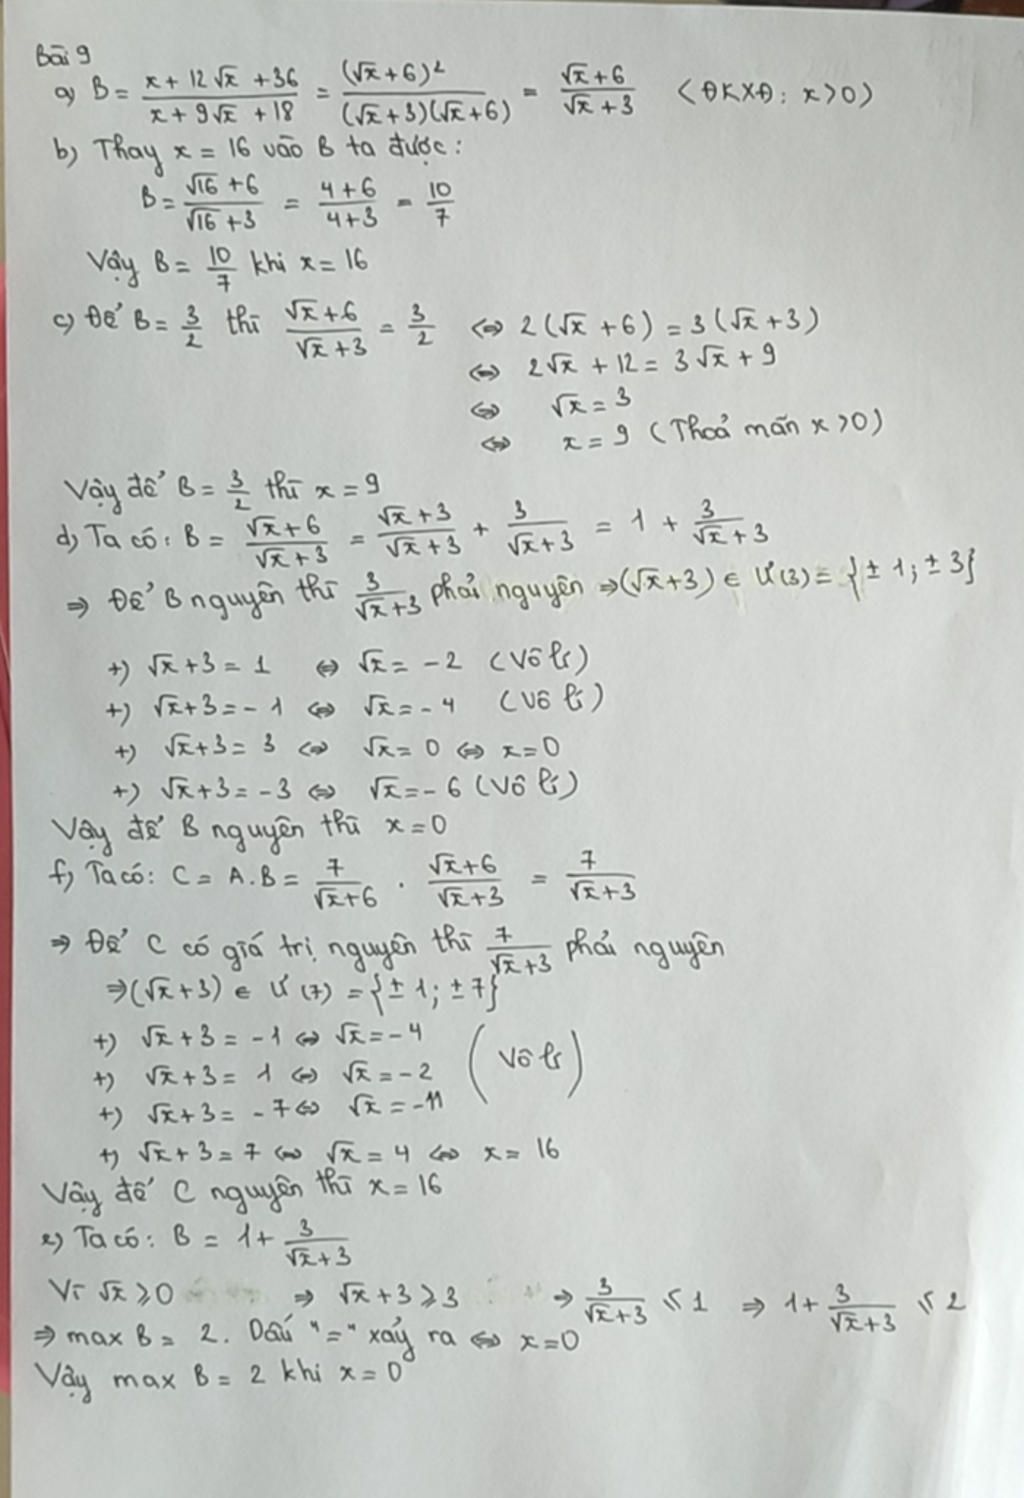 Bài 9
a) B = (x + 12√x + 36)/(x + 9√x + 18) = (√x + 6)²/((√x + 3)(√x + 6)) = (√x + 6)/(√x + 3) (ĐKXĐ: x > 0)
b) Thay x = 16 vào B ta được:
B = (√16 + 6)/(√16 + 3) = (4 + 6)/(4 + 3) = 10/7
Vậy B = 10/7 khi x = 16
c) Để B = 3/2 thì (√x + 6)/(√x + 3) = 3/2 ⇔ 2(√x + 6) = 3(√x + 3)
⇔ 2√x + 12 = 3√x + 9
⇔ √x = 3
⇔ x = 9 (Thoả mãn x > 0)
Vậy để B = 3/2 thì x = 9
d) Ta có: B = (√x + 6)/(√x + 3) = (√x + 3)/(√x + 3) + 3/(√x + 3) = 1 + 3/(√x + 3)
⇒ Để B nguyên thì 3/(√x + 3) phải nguyên ⇒ (√x + 3) ∈ Ư(3) = {±1; ±3}
+) √x + 3 = 1 ⇔ √x = -2 (Vô lí)
+) √x + 3 = -1 ⇔ √x = -4 (Vô lí)
+) √x + 3 = 3 ⇔ √x = 0 ⇔ x = 0
+) √x + 3 = -3 ⇔ √x = -6 (Vô lí)
Vậy để B nguyên thì x = 0
f) Ta có: C = A.B = 7/(√x + 6) . (√x + 6)/(√x + 3) = 7/(√x + 3)
⇒ Để C có giá trị nguyên thì 7/(√x + 3) phải nguyên
⇒ (√x + 3) ∈ Ư(7) = {±1; ±7}
+) √x + 3 = -1 ⇔ √x = -4
+) √x + 3 = 1 ⇔ √x = -2 (Vô lí)
+) √x + 3 = -7 ⇔ √x = -11
+) √x + 3 = 7 ⇔ √x = 4 ⇔ x = 16
Vậy để C nguyên thì x = 16
e) Ta có: B = 1 + 3/(√x + 3)
Vì √x ⩾ 0 ⇒ √x + 3 ⩾ 3 ⇒ 3/(√x + 3) ⩽ 1 ⇒ 1 + 3/(√x + 3) ⩽ 2
⇒ max B = 2. Dấu "=" xảy ra ⇔ x = 0
Vậy max B = 2 khi x = 0